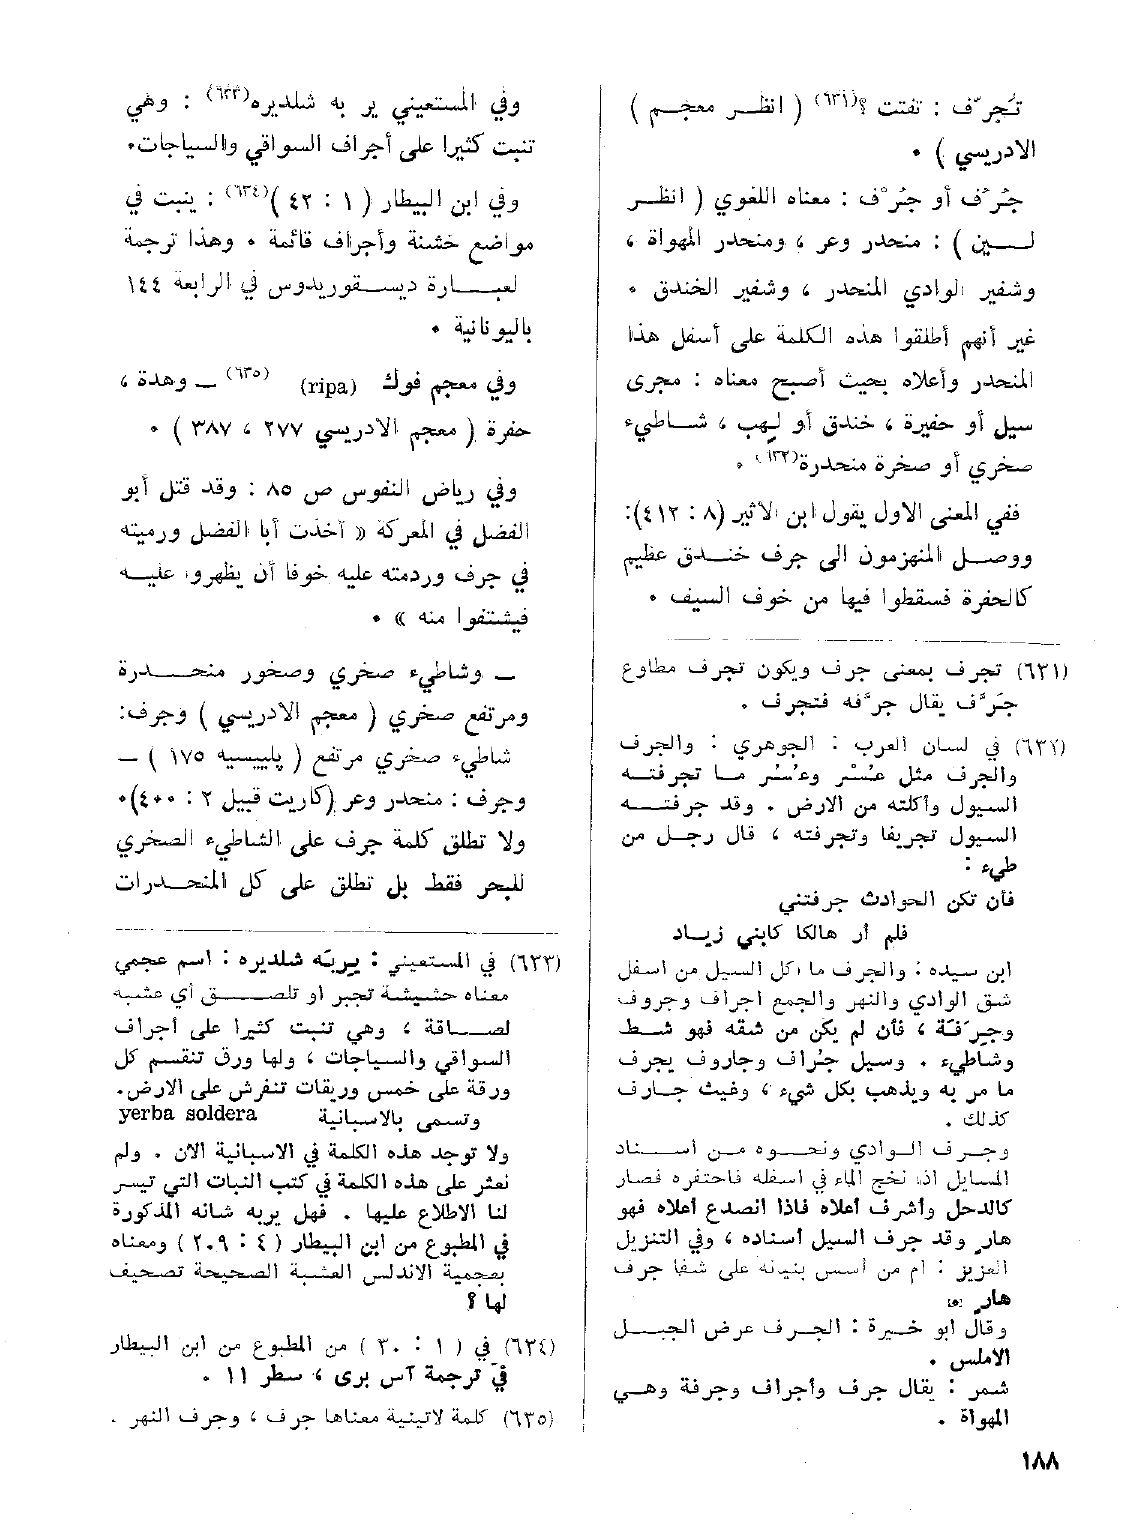 تَجُرّف : تفتت ؟(٦٣١) ( انظر معجم )
الادريسي ) ٠
جُرُف أو جُرْف : معناه اللغوي ( انظر
لين ) : منحدر وعر ، ومنحدر المهواة ،
وشفير الوادي المنحدر ، وشفير الخندق ٠
غير أنهم أطلقوا هذه الكلمة على أسفل هذا
المنحدر وأعلاه بحيث أصبح معناه : مجرى
سيل أو حفيرة ، خندق أو لِهب ، شاطيء
صخري أو صخرة منحدرة(٦٣٢) ٠
ففي المعنى الاول يقول ابن الاثير (٨ : ٤١٢):
ووصل المنهزمون الى جرف خندق عظيم
كالحفرة فسقطوا فيها من خوف السيف ٠
(٦٣١) تجرف بمعنى جرف ويكون تجرف مطاوع
جَرَّف يقال جرَّفه فتجرف .
(٦٣٢) في لسان العرب : الجوهري : والجرف
والجرف مثل عُسْر وعُسُر ما تجرفته
السيول وأكلته من الارض . وقد جرفته
السيول تجريفا وتجرفته ، قال رجل من
طيء :
فأن تكن الحوادث جرفتني
فلم أر هالكا كابني زياد
ابن سيده : والجرف ما اكل السيل من اسفل
شق الوادي والنهر والجمع اجراف وجروف
وجِرَفَة ، فأن لم يكن من شقه فهو شط
وشاطيء . وسيل جُراف وجاروف يجرف
ما مر به ويذهب بكل شيء ، وغيث جارف
كذلك .
وجرف الوادي ونحوه من أسناد
المسايل اذا نخج الماء في اسفله فاحتفره فصار
كالدحل وأشرف أعلاه فاذا انصدع أعلاه فهو
هار وقد جرف السيل أسناده ، وفي التنزيل
العزيز : ام من أسس بنيانه على شفا جرف
هار
وقال ابو خيرة : الجرف عرض الجبل
الاملس .
شمر : يقال جرف وأجراف وجرفة وهي
المهواة .
وفي المستعيني ير به شلديره(٦٣٣) : وهي
تنبت كثيرا على أجراف السواقي والسياجات٠
وفي ابن البيطار ( ١ : ٤٢ )(٦٣٤) : ينبت في
مواضع خشنة وأجراف قائمة ٠ وهذا ترجمة
لعبارة ديسقوريدوس في الرابعة ١٤٤
باليونانية ٠
وفي معجم فوك (ripa) (٦٣٥) — وهدة ،
حفرة ( معجم الادريسي ٢٧٧ ، ٣٨٧ ) ٠
وفي رياض النفوس ص ٨٥ : وقد قتل أبو
الفضل في المعركة « آخذت أبا الفضل ورميته
في جرف وردمته عليه خوفا أن يظهروا عليه
فيشتفوا منه » ٠
— وشاطيء صخري وصخور منحدرة
ومرتفع صخري ( معجم الادريسي ) وجرف:
شاطيء صخري مرتفع ( پليسيه ١٧٥ ) —
وجرف : منحدر وعر (كاريت قبيل ٢ : ٤٠٠)٠
ولا تطلق كلمة جرف على الشاطيء الصخري
للبحر فقط بل تطلق على كل المنحدرات
(٦٣٣) في المستعيني : يربَه شلديره : اسم عجمي
معناه حشيشة تجبر او تلصق أي عشبه
لصاقة ، وهي تنبت كثيرا على أجراف
السواقي والسياجات ، ولها ورق تنقسم كل
ورقة على خمس وريقات تنفرش على الارض.
وتسمى بالاسبانية yerba soldera
ولا توجد هذه الكلمة في الاسبانية الآن . ولم
نعثر على هذه الكلمة في كتب النبات التي تيسر
لنا الاطلاع عليها . فهل يربه شانه المذكورة
في المطبوع من ابن البيطار ( ٤ : ٢٠٩ ) ومعناه
بعجمية الاندلس العشبة الصحيحة تصحيف
لها ؟
(٦٣٤) في ( ١ : ٣٠ ) من المطبوع من ابن البيطار
في ترجمة آس برى ، سطر ١١ .
(٦٣٥) كلمة لاتينية معناها جرف ، وجرف النهر .
١٨٨